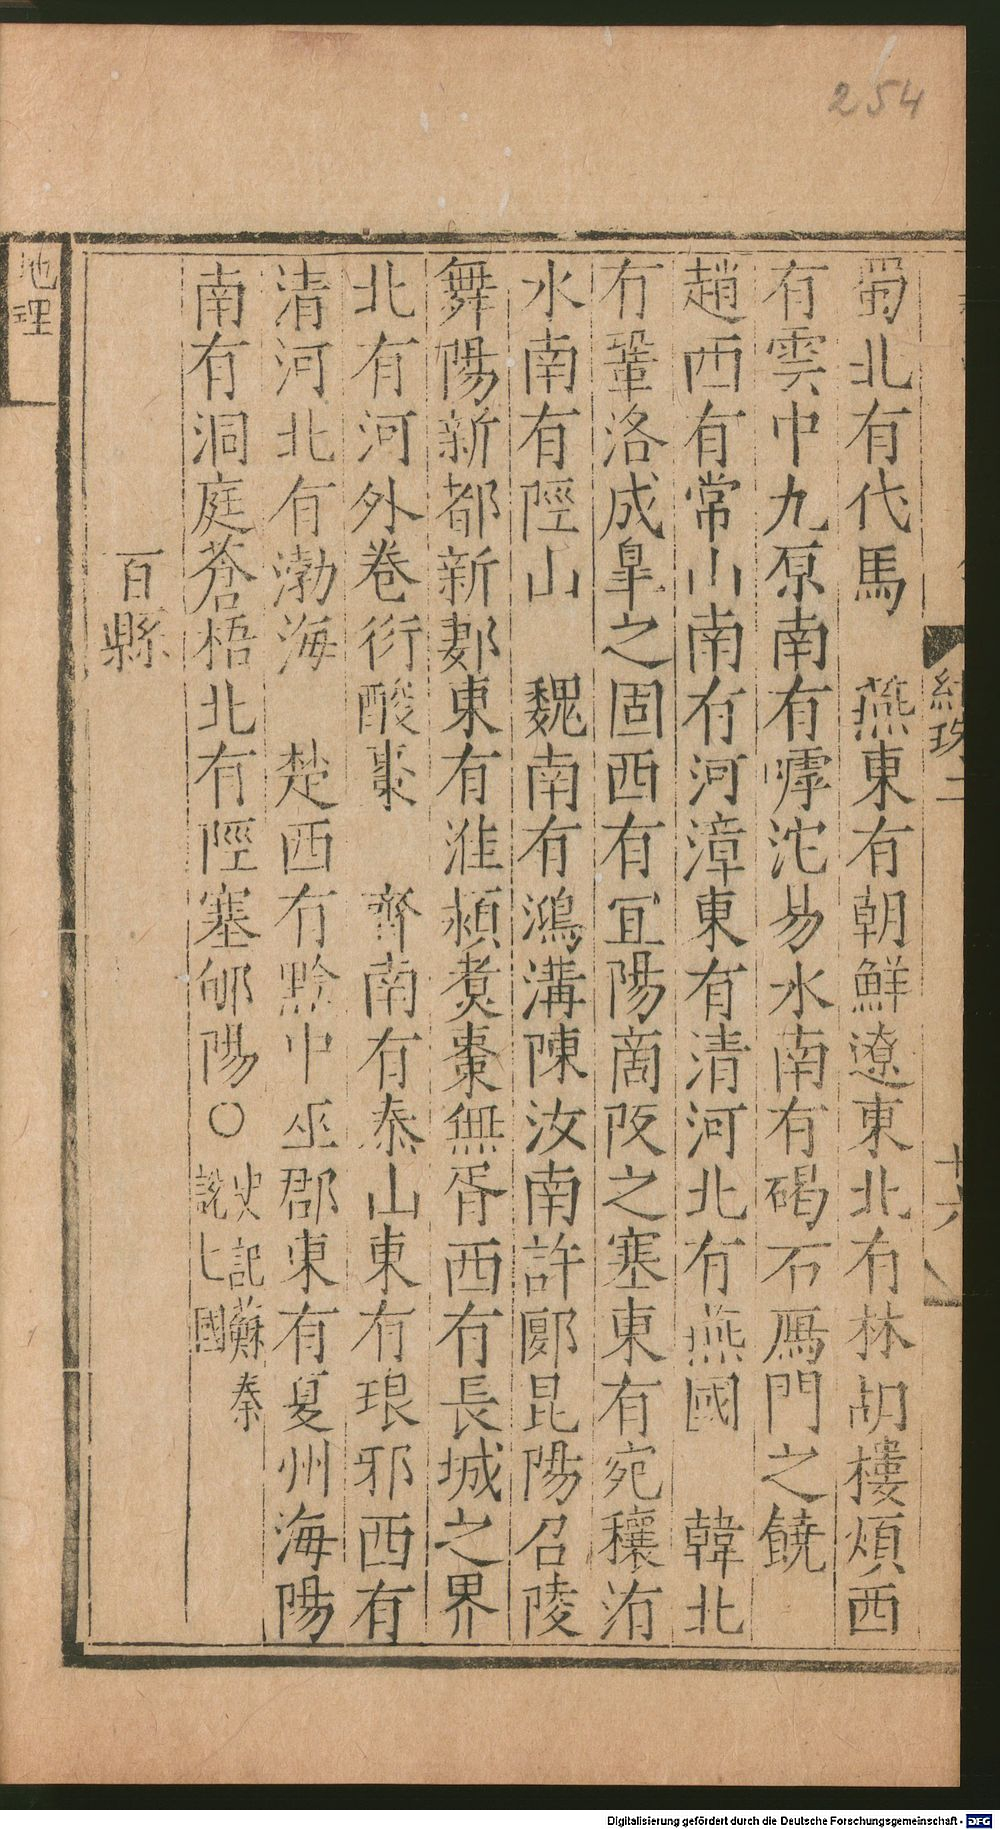 254
蜀北有代馬　燕東有朝鮮遼東北有林胡樓煩西
有雲中九原南有嘑沱易水南有碣石鴈門之饒
趙西有常山南有河漳東有清河北有燕國　韓北
有鞏洛成臯之固西有冝陽啇阪之塞東有宛穰洧
水南有陘山　魏南有鴻溝陳汝南許郾昆陽召陵
舞陽新都新郪東有淮潁煑棗無胥西有長城之界
北有河外卷衍酸棗　齊南有泰山東有琅邪西有
清河北有渤海　楚西有黔中巫郡東有夏州海陽
南有洞庭蒼梧北有陘塞郇陽○史記蘇秦
說七國
百縣
地理
紀珠二
十六
Digitalisierung gefördert durch die Deutsche Forschungsgemeinschaft - DFG